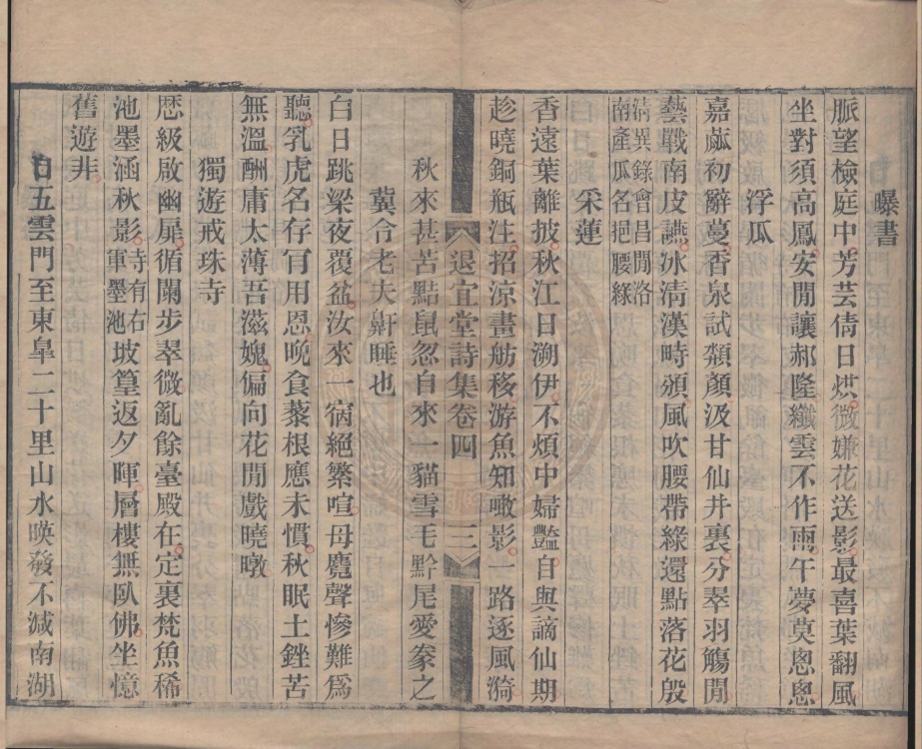 曝書
脈望檢庭中芳芸倩日烘微嫌花送影最喜葉翻風
坐對須高鳳安閒讓郝隆纖雲不作雨午夢莫悤悤
浮瓜
嘉蓏初辭蔓香泉試頮顏汲甘仙井裏分翠羽觴閒
藝戰南皮讌冰淸漢時頒風吹腰帶綠還點落花殷
淸異錄會昌閒洛
南產瓜名挹腰綠
采蓮
香遠葉離披秋江日溯伊不煩中婦豔自與謫仙期
趁曉銅瓶注招涼畫舫移游魚知噉影一路逐風漪
退宜堂詩集卷四 三
秋來甚苦點鼠忽自來一貓雪毛黔尾愛豢之
冀令老夫鼾睡也
白日跳梁夜覆盆汝來一病絕繁喧母麑聲慘難爲
聽乳虎名存肎用恩晚食藜根應未慣秋眠土銼苦
無溫酬庸太薄吾滋媿偏向花閒戲曉暾
獨遊戒珠寺
歷級啟幽扉循闌步翠微亂餘臺殿在定裏梵魚稀
池墨涵秋影寺有右軍墨池坡篁返夕暉層樓無臥佛坐憶
舊遊非
自五雲門至東皐二十里山水暎發不減南湖